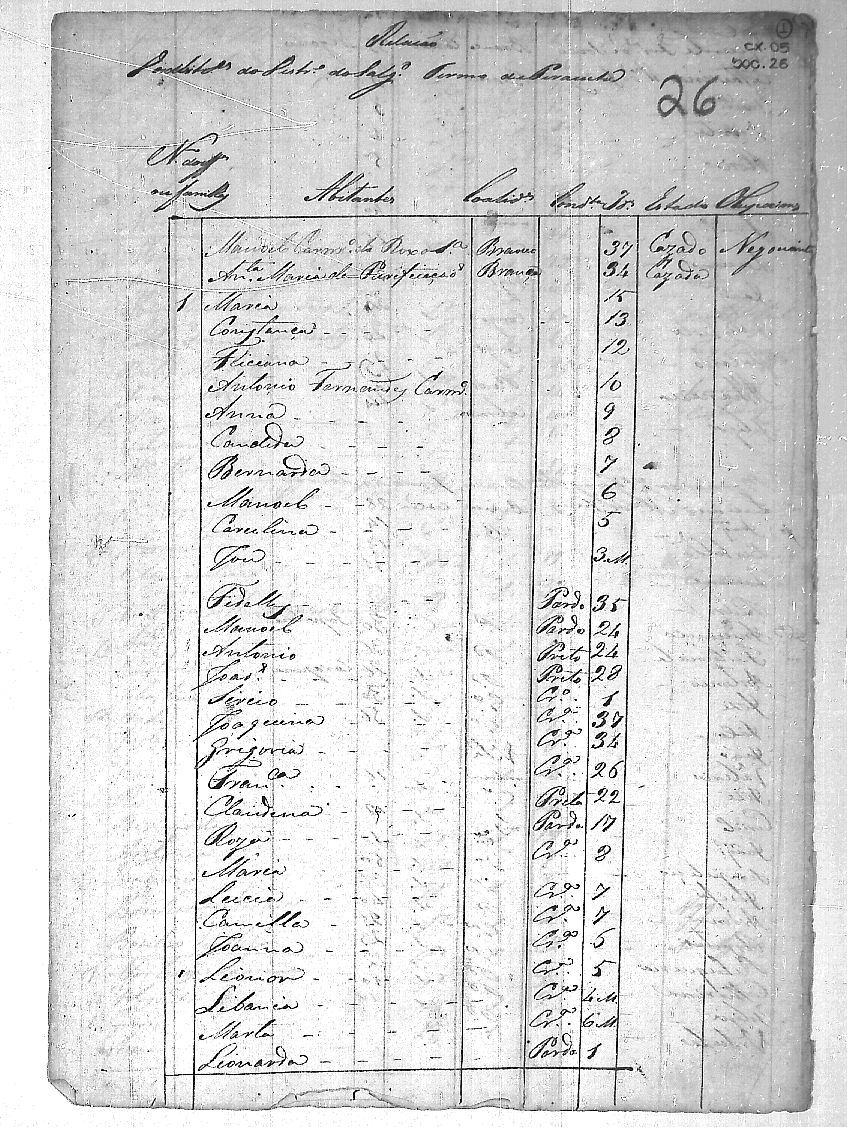 1
CX.05
DOC.26
Relação
do Distr.º do Salg.º Termo de
26
N.
ou familia Abitantes Coalid.s Cond.ta Id.s Estado Okupacions
Manoel Carnr.º da Roxa S.ª Branco 37 Cazado Negociante
An.ta Maria de Purificação Branca 34 Cazada
1 Maria 15
Constança 13
Filiciana 12
Antonio Fernandes Carnr.º 10
Anna 9
Candida 8
Bernarda 7
Manoel 6
Carulina 5
3 M.
Fidelles Pardo 35
Manoel Pardo 24
Antonio Preto 24
Preto 28
Sircio Cr.º 1
Joaquina Cr.ª 37
Grigoria Cr.ª 34
Fran.ca Cr.ª 26
Claudina Preta 22
Roza Parda 17
Maria Cr.ª 8
Lucia Cr.ª 7
Camilla Cr.ª 7
Joanna Cr.ª 5
Lionor Cr.ª 5
Libania Cr.ª 4 M.
Marta Cr.ª 6 M.
Lionarda Parda 1